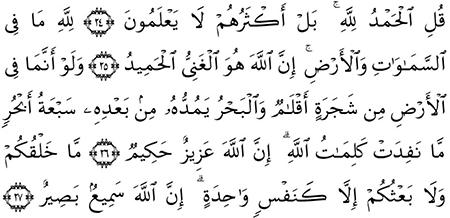 قُلِ ٱلۡحَمۡدُ لِلَّهِۚ بَلۡ أَكۡثَرُهُمۡ لَا يَعۡلَمُونَ ﴿٢٤﴾ لِلَّهِ مَا فِى
ٱلسَّمَـٰوَٰتِ وَٱلۡأَرۡضِۚ إِنَّ ٱللَّهَ هُوَ ٱلۡغَنِىُّ ٱلۡحَمِيدُ ﴿٢٥﴾ وَلَوۡ أَنَّمَا فِى
ٱلۡأَرۡضِ مِن شَجَرَةٍ أَقۡلَـٰمٌ وَٱلۡبَحۡرُ يَمُدُّهُۥ مِنۢ بَعۡدِهِۦ سَبۡعَةُ أَبۡحُرٍ
مَّا نَفِدَتۡ كَلِمَـٰتُ ٱللَّهِۗ إِنَّ ٱللَّهَ عَزِيزٌ حَكِيمٌ ﴿٢٦﴾ مَّا خَلۡقُكُمۡ
وَلَا بَعۡثُكُمۡ إِلَّا كَنَفۡسٍ وَٰحِدَةٍۗ إِنَّ ٱللَّهَ سَمِيعُۢ بَصِيرٌ ﴿٢٧﴾